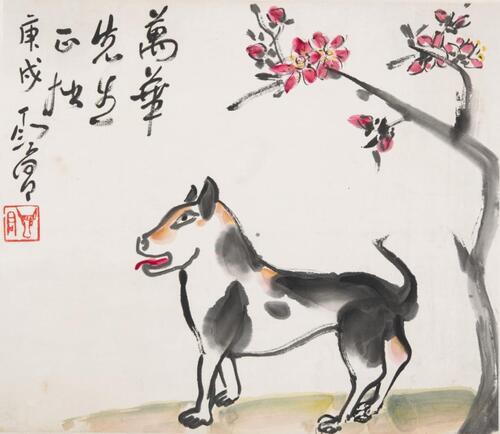 萬華
先生
正拙
庚戌 丁衍庸